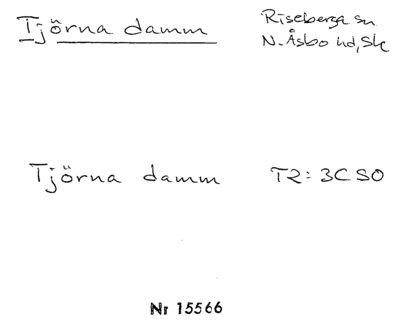 Tjörna damm Riseberga sn
N. Åsbo hd, Sk
Tjörna damm T2: 3C SO
Nr 15566